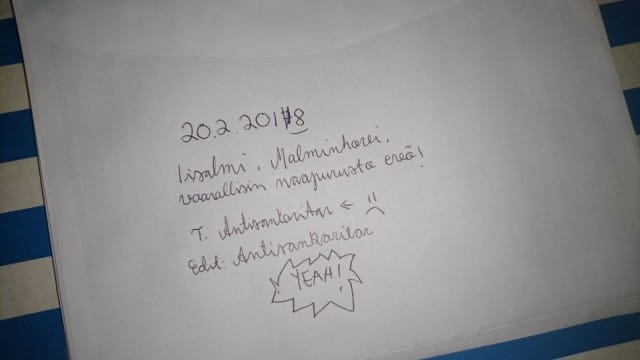 20.2.2018
Iisalmi,
vaarallisin naapurusto
T. Antisankaritar ← :(
Edit: Antisankaritar
YEAH!